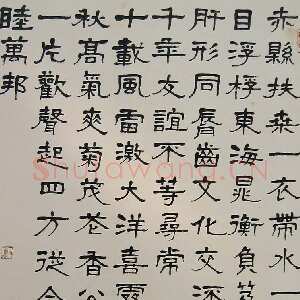 赤縣扶桑一衣帶水一
目浮桴東海晁衡負
肝形同脣齒文化交
千年友誼不等尋常
十載風雷激大洋喜
秋高氣爽菊茂花香
一片歡聲起四方從今
睦萬邦
Shufawang.CN